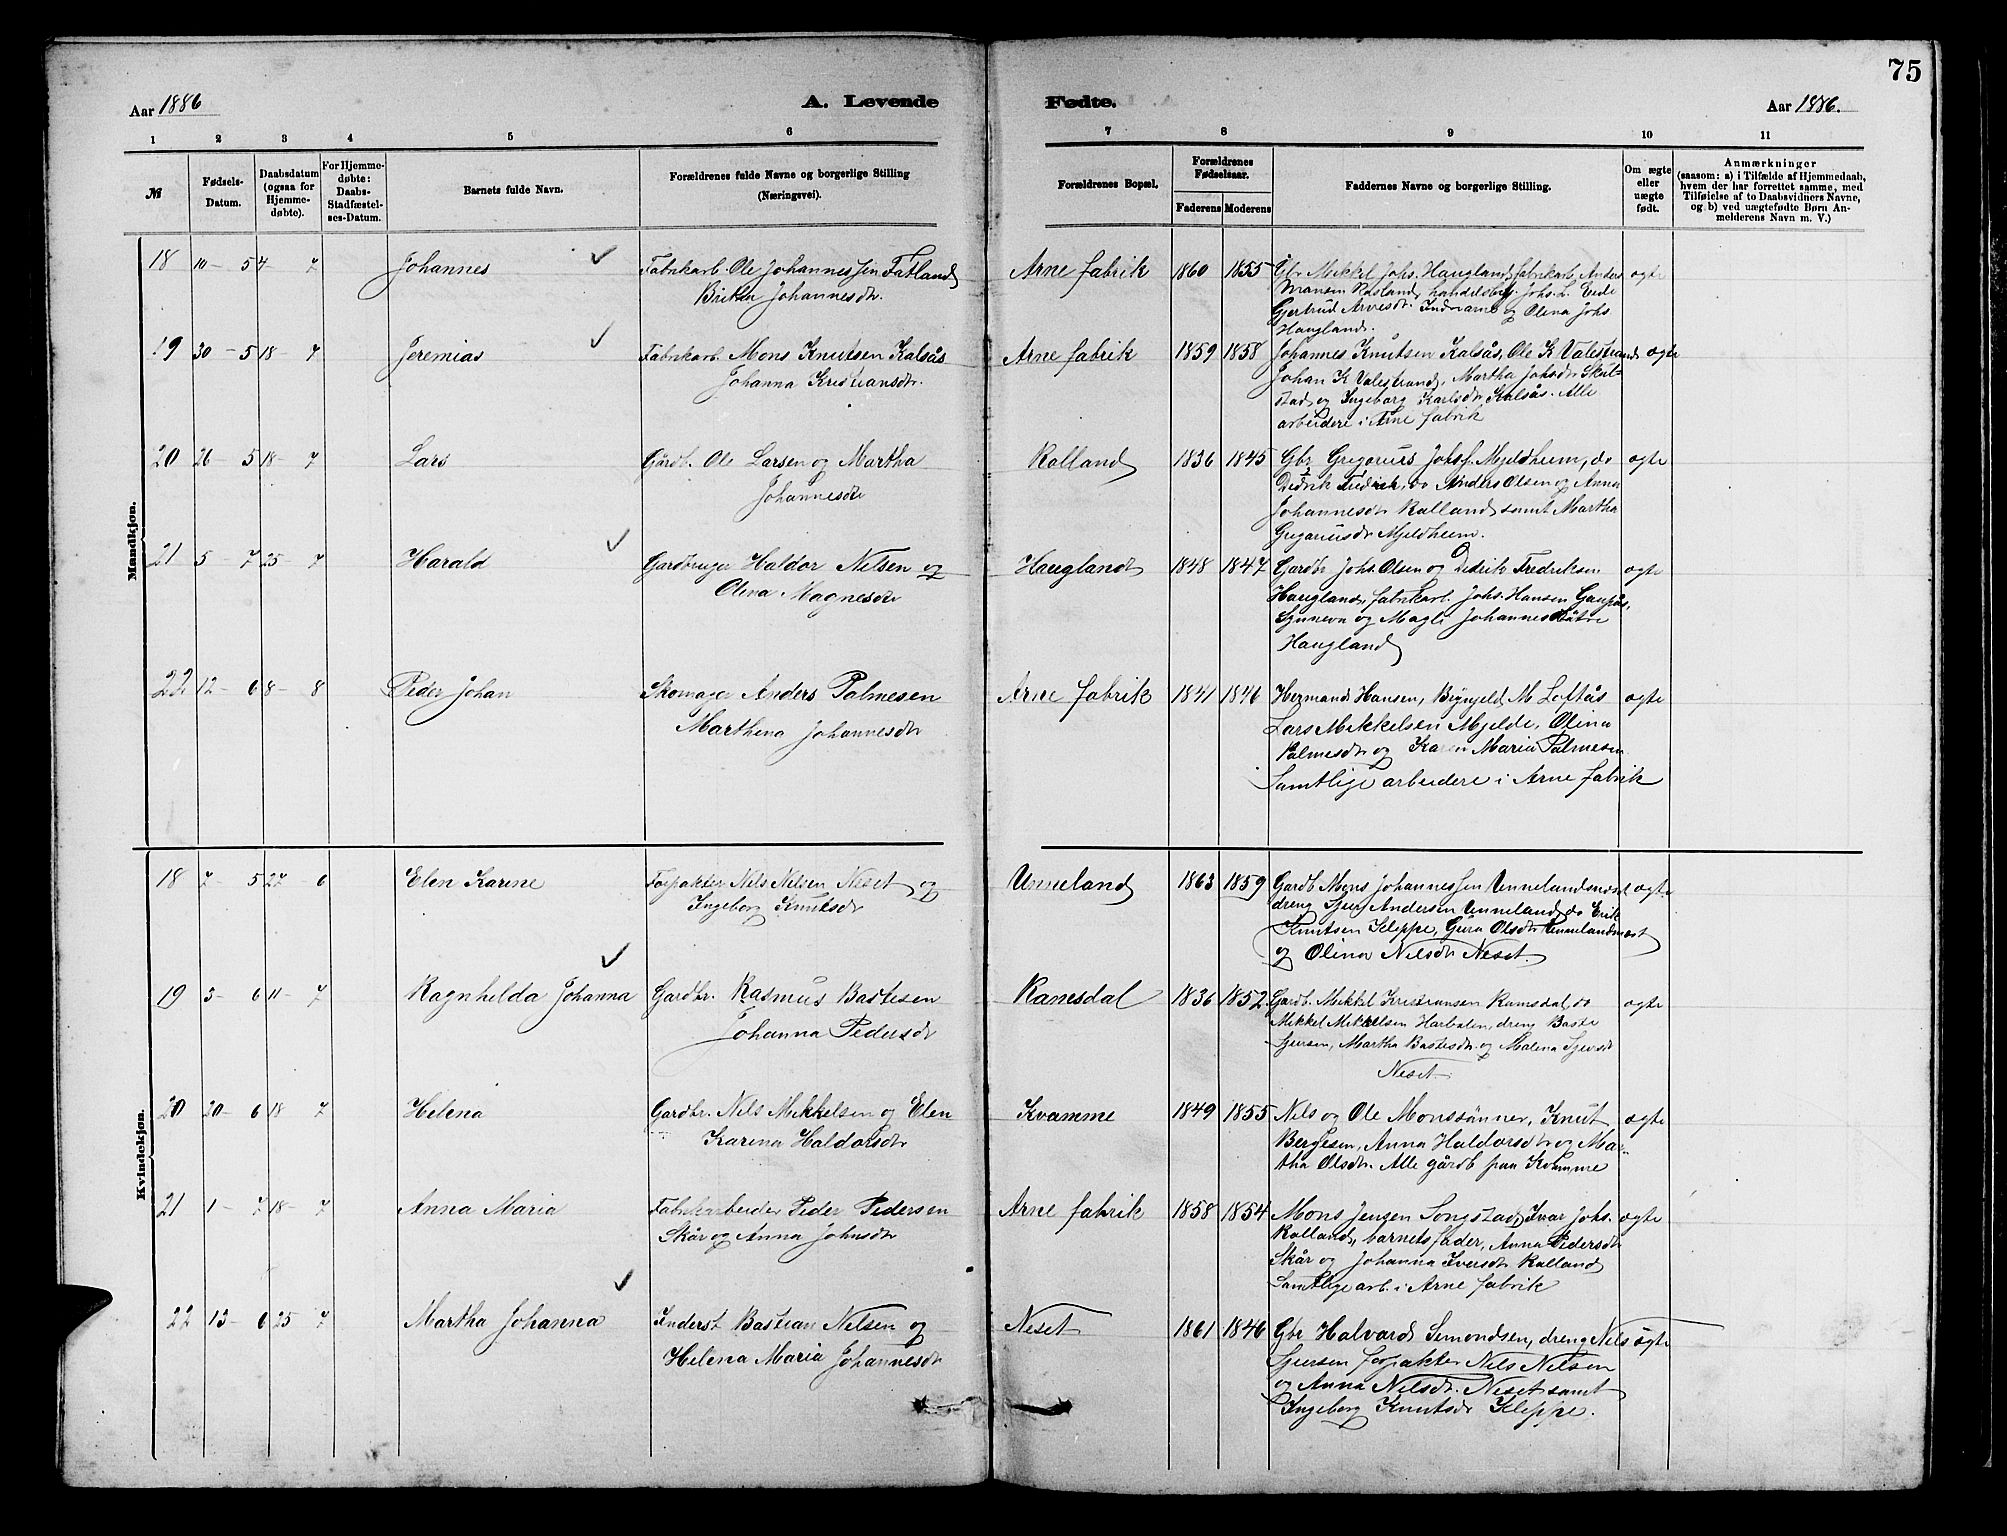 75
Aar 1886
A. Levende
Fødte.
Aar 1886.
1 2 3 4 5 6 7 8 9 10 11
№
Fødsels-
Datum.
Daabsdatum
(ogsaa for
Hjemme-
døbte).
For Hjemme-
døbte:
Daabs-
Stadfæstel-
ses-Datum.
Barnets fulde Navn.
Forældrenes fulde Navne og borgerlige Stilling
(Næringsvei).
Forældrenes Bopæl.
Forældrenes
Fødselsaar.
Faderens Moderens
Faddernes Navne og borgerlige Stilling.
Om ægte
eller
uægte
født.
Anmærkninger
(saasom: a) i Tilfælde af Hjemmedaab,
hvem der har forrettet samme, med
Tilføielse af to Daabsvidners Navne,
og b) ved uægtefødte Børn An-
melderens Navn m. V.)
Mandkjøn.
18 10-5 4-7 Johannes Fabrikarb. Ole Johannessen Fatland Arne fabrik 1860 1855 Gbr Mikkel Johs. Haugland, fabrikarb Anders ægte
Britha Johannesdr. Monsen Røsland, handelsbej. Johs. L. Eide
Gjertrud Arnesdr. Indrearne og Olina Johs.
Haugland.
19 30-5 18-7 Jeremias Fabrikarb. Mons Knutsen Kalsås Arne fabrik 1859 1858 Johannes Knutsen Kalsås, Ole K Valestrand ægte
Johanna Kristiansdr. Johan K Valestrand, Martha Johsdr Skul-
stad og Ingeborg Karlsdr Kalsås. Alle
arbeidere i Arne fabrik
20 26-5 18-7 Lars Gårdb. Ole Larsen og Martha Kalland 1836 1845 Gbr Gregorius Johs. Mjeldheim, do ægte
Johannesdr Didrik Fredrik, do Anders Olsen og Anna
Johannesdr Kalland samt Martha
Gregoriusdr Mjeldheim.
21 5-7 25-7 Harald Gardbruger Haldor Nilsen og Haugland 1848 1847 Gardbr Johs. Olsen og Didrik Fredriksen ægte
Olina Magnesdr Haugland, fabrikarb. Johs. Hansen Gaupås,
Synneva og Magli Johannesdåtre
Haugland
22 12-6 8-8 Peder Johan Skomager Anders Palmesen Arne fabrik 1841 1846 Hermand Hansen, Brynjeld M Loftås ægte
Marthina Johannesdr Lars Mikkelsen Mjelde, Olina
Palmesdr og Karen Maria Palmesen
Samtlige arbeidere i Arne fabrik
Kvindekjøn.
18 7-5 27-6 Elen Karine Forpakter Nils Nilsen Neset og Unneland 1863 1859 Gardb Mons Johannessen Unnelandsneset ægte
Ingeborg Knutsdr dreng Sjur Andersen Unneland, do Erik
Knutsen Kleppe, Gura Olsdr Unnelandsneset
og Olina Nilsdr Neset.
19 3-6 11-7 Ragnhelda Johanna Gardbr. Rasmus Bastesen Ramsdal 1836 1852 Gardb. Mikkel Kristiansen Ramsdal, do ægte
Johanna Pedersdr Mikkel Mikkelsen Harbalen, dreng Baste
Sjursen, Martha Bastesdr og Malena Sjursdr
Neset
20 20-6 18-7 Helena Gardbr. Nils Mikkelsen og Elen Kvamme 1849 1855 Nils og Ole Monssönner, Knut ægte
Karina Haldorsdr Bergesen, Anna Haldorsdr og Mar-
tha Olsdr. Alle gårdb paa Kvamme
21 1-7 18-7 Anna Maria Fabrikarbeider Peder Pedersen Arne fabrik 1858 1854 Mons Jensen Songstad, Ivar Johs. ægte
Skår og Anna Johnsdr Kalland, barnets fader, Anna Pedersdr
Skår og Johanna Iversdr Kalland
Samtlige arb. i Arne fabrik
22 13-6 25-7 Martha Johanna Inderst Bastian Nilsen og Neset 1861 1846 Gbr Halvard Simondsen, dreng Nils ægte
Helena Maria Johannesdr Sjursen forpakter Nils Nilsen
og Anna Nilsdr. Neset samt
Ingeborg Knutsdr Kleppe.